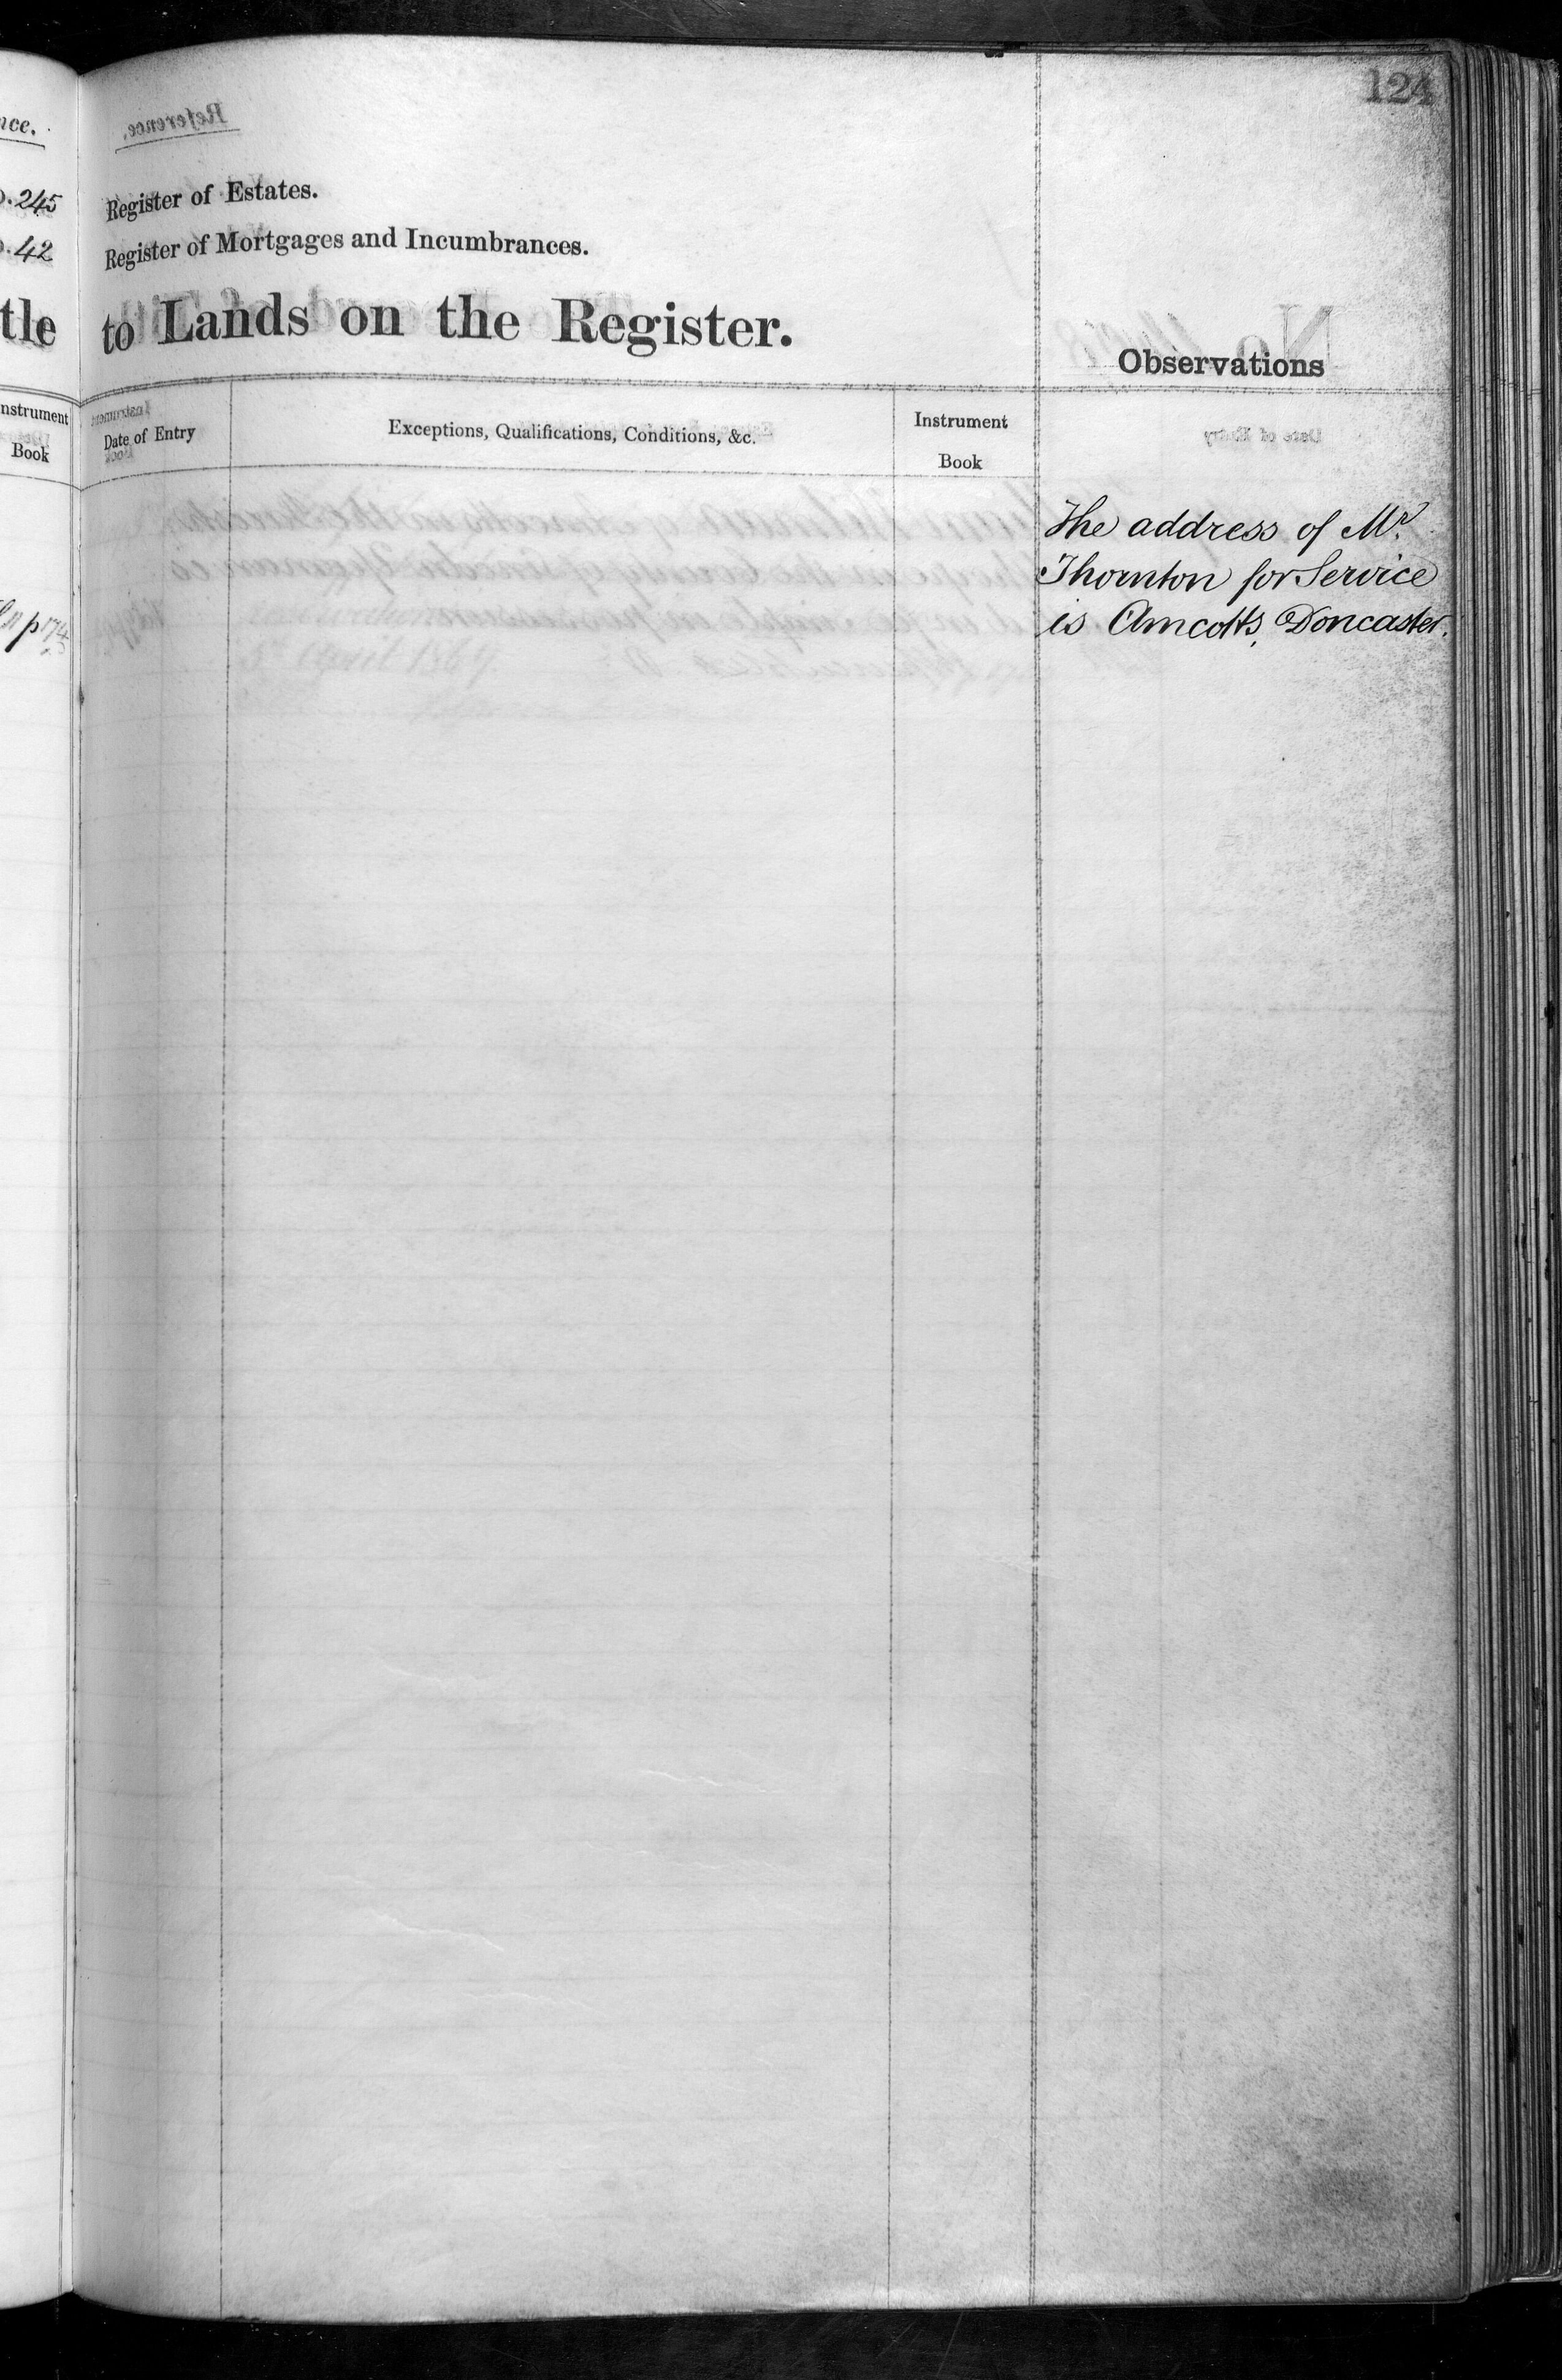 124
nce.
245
42
Register of Estates.
Register of Mortgages and Incumbrances.
tle to Lands on the Register.
Observations
Instrument
Book
Date of Entry
Exceptions, Qualifications, Conditions, &c.
Instrument
Book
The address of Mr.
Thornton for Service
is Amcotts, Doncaster.